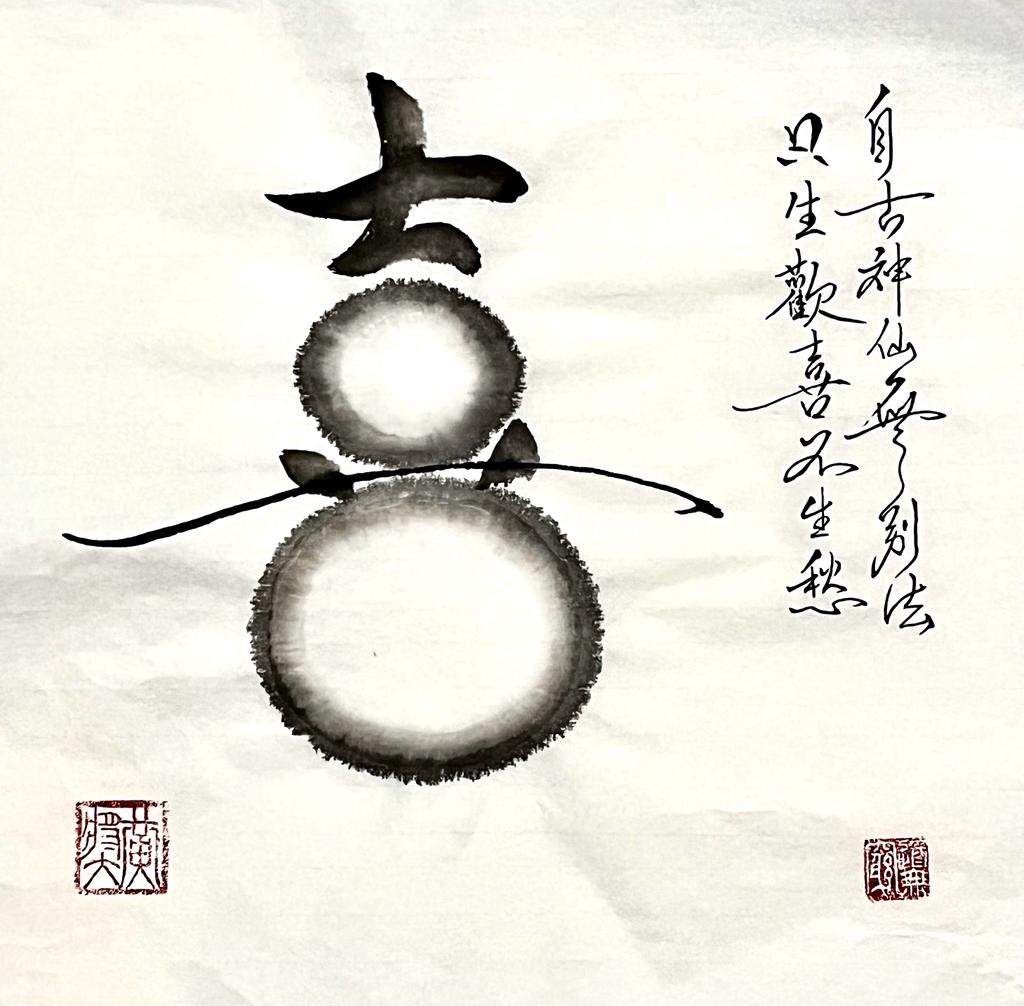 喜
自古神仙無別法
只生歡喜不生愁